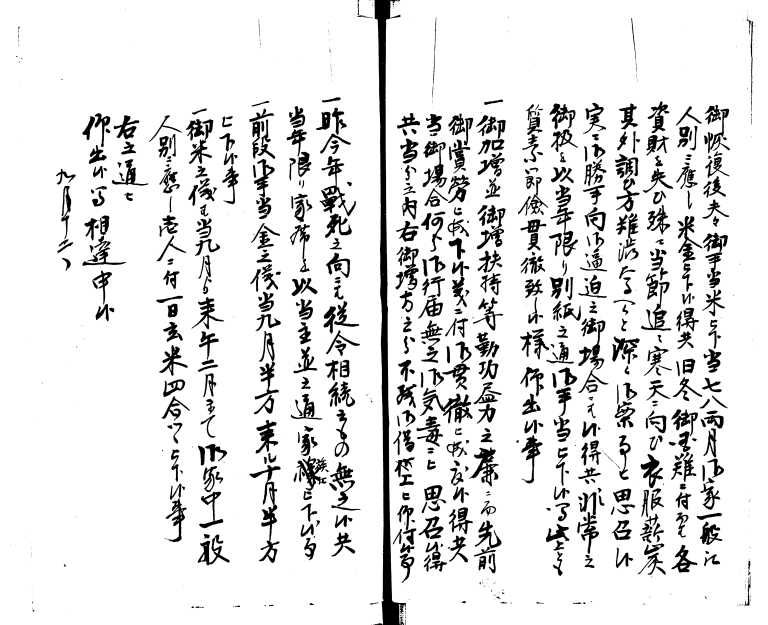 御恢復後夫々御手当米被下当七八両月御家一般江
人別ニ應し米金被下候得共旧冬御国難ニ付而者各
資財を失ひ殊ニ当節追々寒天ニ向ひ衣服薪炭
其外調ひ方難渋たるへくと深く御案事被思召候
実ニ御勝手向御逼迫之御場合ニ者候得共非常之
御扱を以当年限り別紙之通御手当被下候間此上とも
質素節儉貫徹致し候様被仰出候事
一御加増並御増扶持等勤功尽力之廉ニ而先前
御賞労ニ被成下候義ニ付御貫徹ニ被成度候得共
当御場合何分御行届無之御気毒ニ被思召候得
共当分之内右御増方之分不残御借上被仰付候事
一昨今年戦死之向ニ者従令相続之もの無之候共
当年限り家席を以当主並之通家族江被下候事
一前段御手当金之儀当九月半方来ル十月半方
被下候事
一御米之儀者当九月より来午二月まて御家中一般
人別ニ應し壱人ニ付一日玄米四合ツヽ被下候事
右之通被
仰出候間相達申候
九月十二日